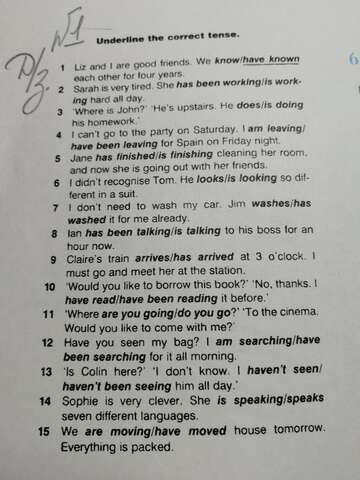 Д/з. №1
Underline the correct tense.
1 Liz and I are good friends. We know/have known
each other for four years.
2 Sarah is very tired. She has been working/is work-
ing hard all day.
3 'Where is John?' 'He's upstairs. He does/is doing
his homework.'
4 I can't go to the party on Saturday. I am leaving/
have been leaving for Spain on Friday night.
5 Jane has finished/is finishing cleaning her room,
and now she is going out with her friends.
6 I didn't recognise Tom. He looks/is looking so dif-
ferent in a suit.
7 I don't need to wash my car. Jim washes/has
washed it for me already.
8 Ian has been talking/is talking to his boss for an
hour now.
9 Claire's train arrives/has arrived at 3 o'clock. I
must go and meet her at the station.
10 'Would you like to borrow this book?' 'No, thanks. I
have read/have been reading it before.'
11 'Where are you going/do you go?' 'To the cinema.
Would you like to come with me?'
12 Have you seen my bag? I am searching/have
been searching for it all morning.
13 'Is Colin here?' 'I don't know. I haven't seen/
haven't been seeing him all day.'
14 Sophie is very clever. She is speaking/speaks
seven different languages.
15 We are moving/have moved house tomorrow.
Everything is packed.